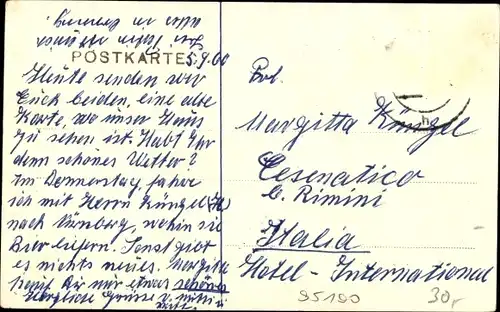 POSTKARTE
5.9.60
Heute senden wir
Euch beiden, eine alte
Karte, wo unser Haus
zu sehen ist. Habt Ihr
denn schönes Wetter?
Am Donnerstag, fahre
ich mit Herrn Küngel
nach Nürnberg, wohin sie
Bier liefern. Sonst gibt
es nichts neues. Margitta
kauf Dir nur etwas schönes
Herzliche Grüsse v.
Margitta Küngel
Cesenatico
b. Rimini
Italia
Hotel - International
95190
30,-